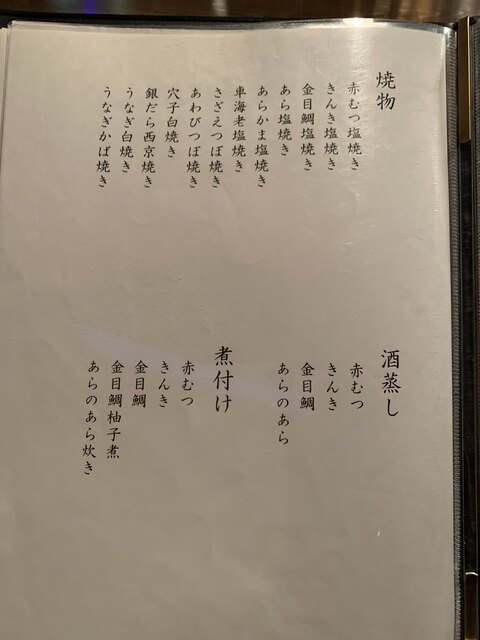 焼物
赤むつ塩焼き
きんき塩焼き
金目鯛塩焼き
あら塩焼き
あらかま塩焼き
車海老塩焼き
さざえつぼ焼き
あわびつぼ焼き
穴子白焼き
銀だら西京焼き
うなぎ白焼き
うなぎかば焼き
酒蒸し
赤むつ
きんき
金目鯛
あらのあら
煮付け
赤むつ
きんき
金目鯛
金目鯛柚子煮
あらのあら炊き